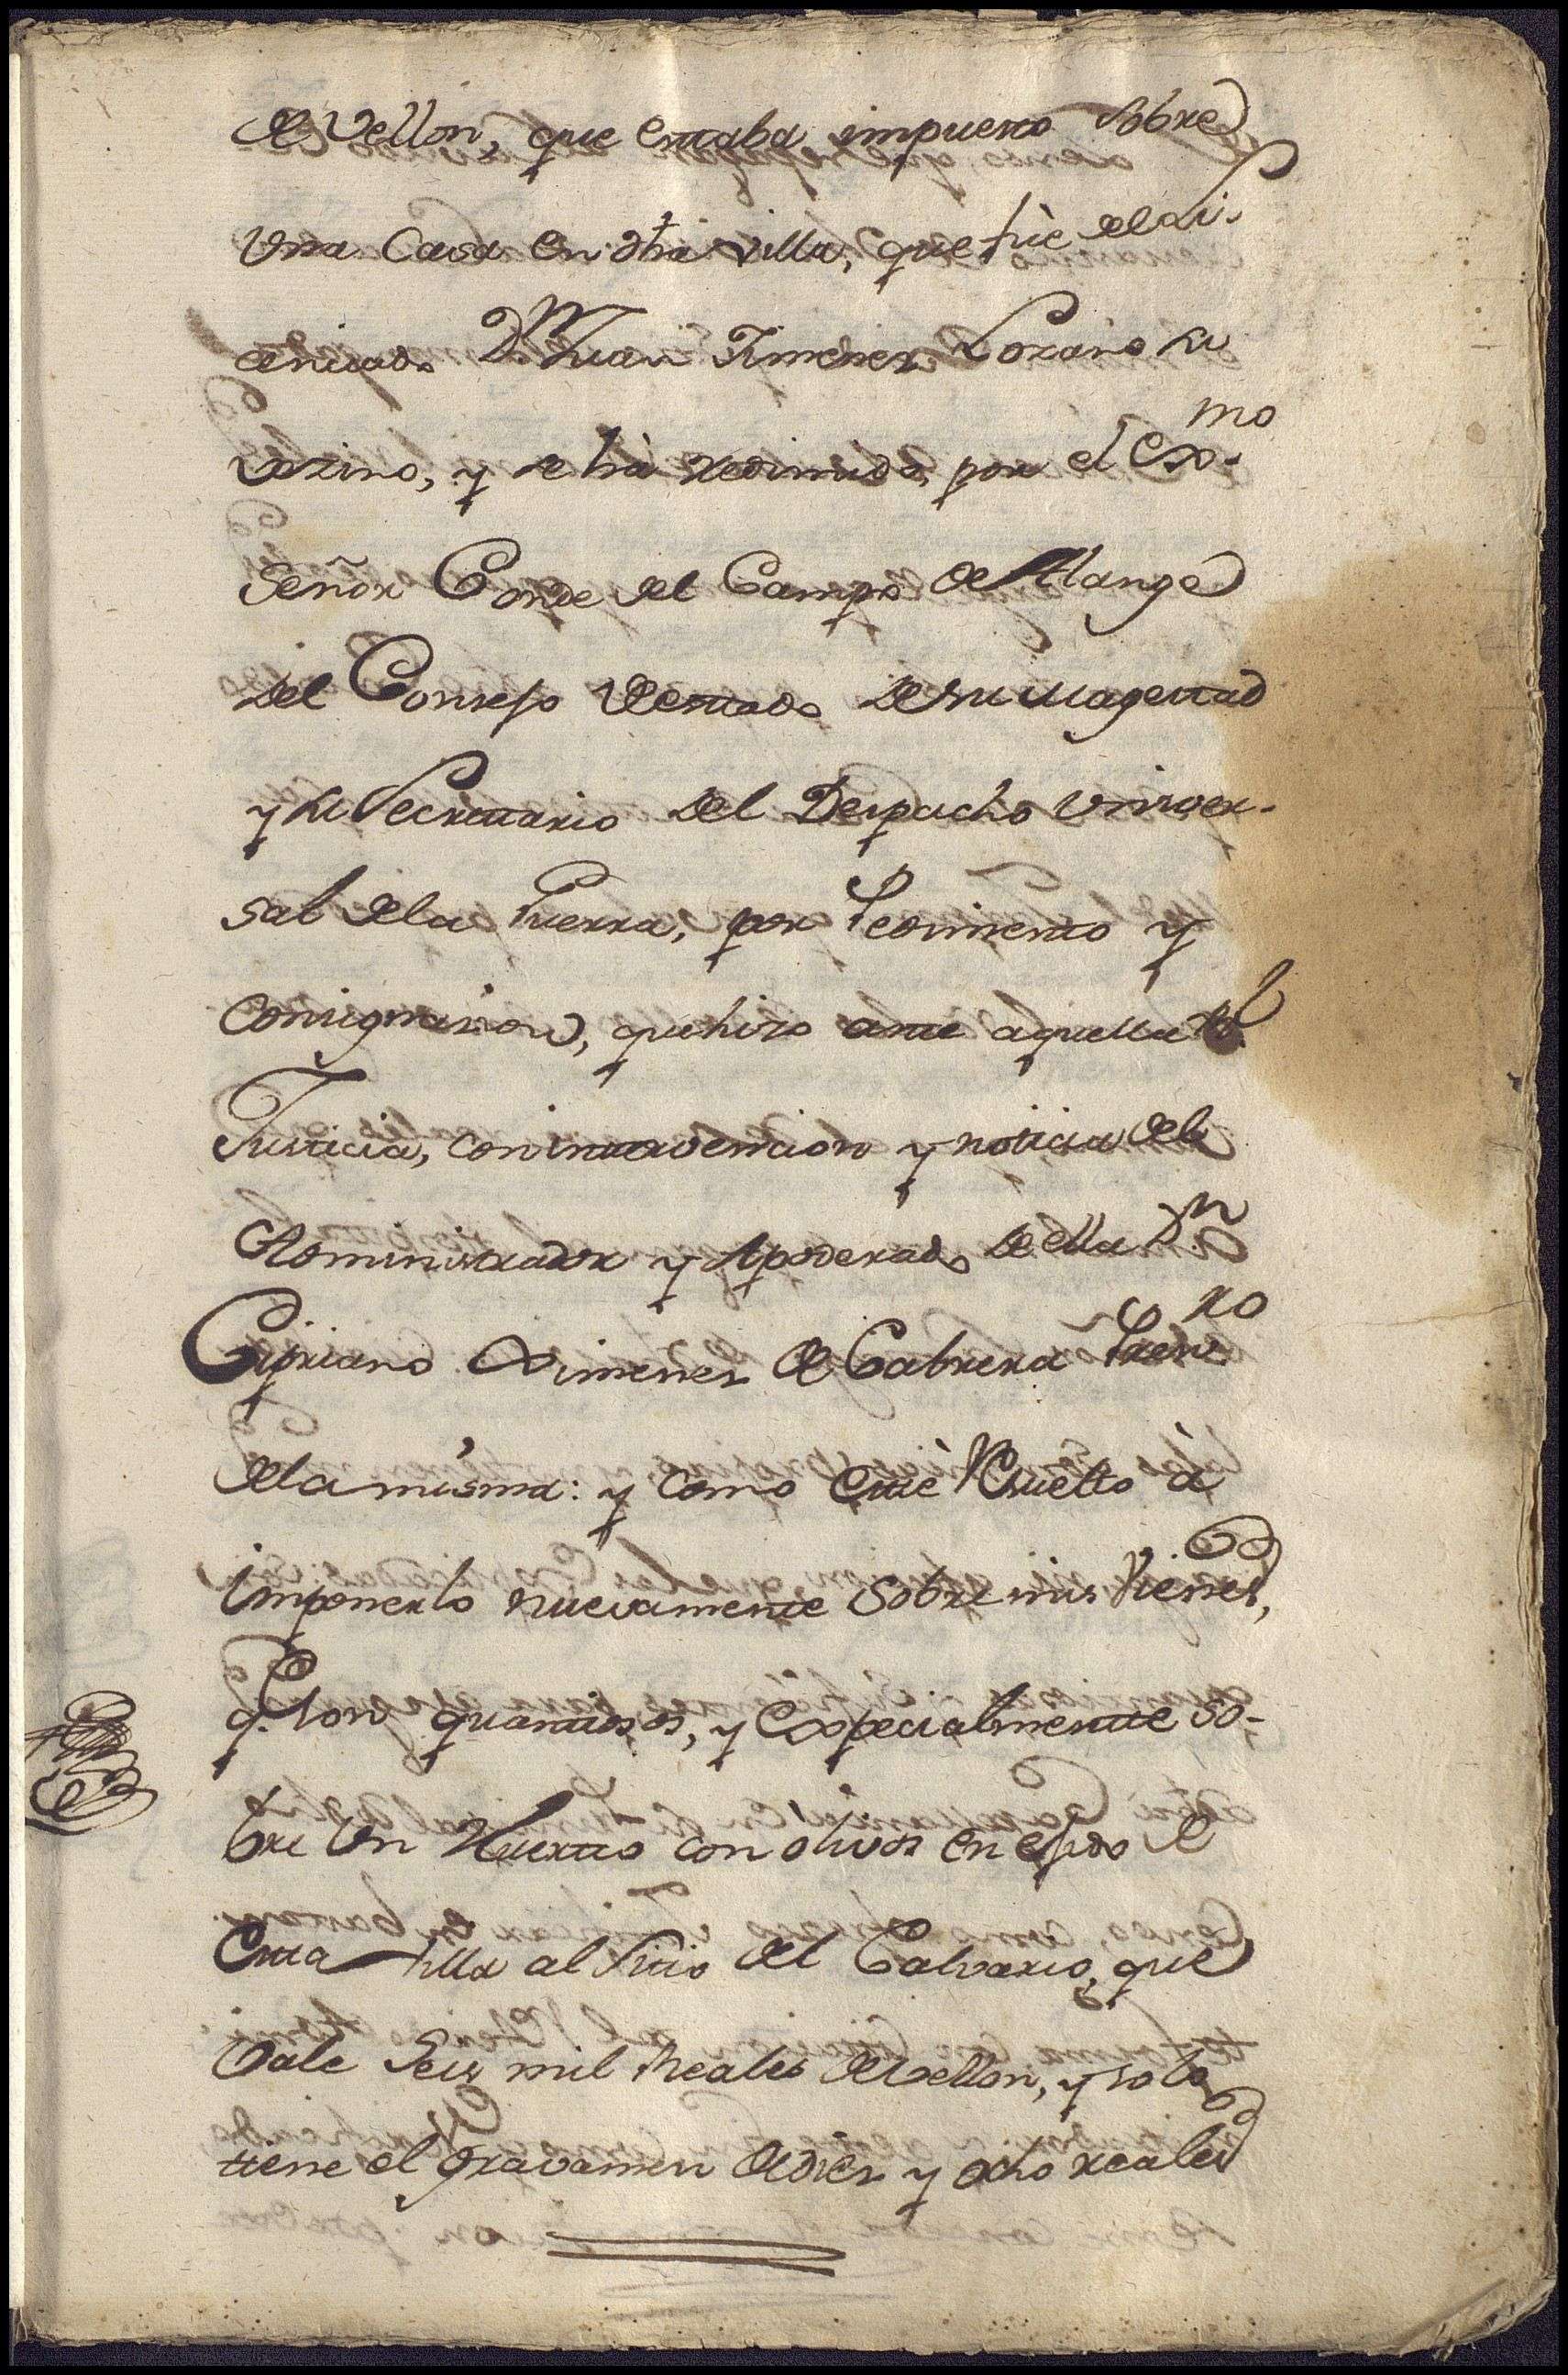 de Vellon, que estaba impuesto sobre
una Casa en dha villa, que fuè del Li-
cenciado D.n Juan Jimenez Lozano su
vezino, y se hà redimido por el Ex.mo
Señor Conde del Campo de Alange
del Consejo de estado de su Magestad
y su Secretario del Despacho Univer-
sal de la Guerra, por Pedimento y
Consignacion, que hizo ante aquella Rl.
Justicia, con intervencion y noticia del
Administrador y Apoderado de ella D.n
Cipriano Ximenez de Cabrera Presv.ro
de la misma: y como estè resuelto à
imponerlo nuevamente sobre mis vienes,
q.e son quantiosos, y Expecialmente so-
bre un Huerto con olivos en exido de
esta villa al sitio del Calvario, que
vale seis mil Reales de vellon, y solo
tiene el gravamen de diez y ocho reales